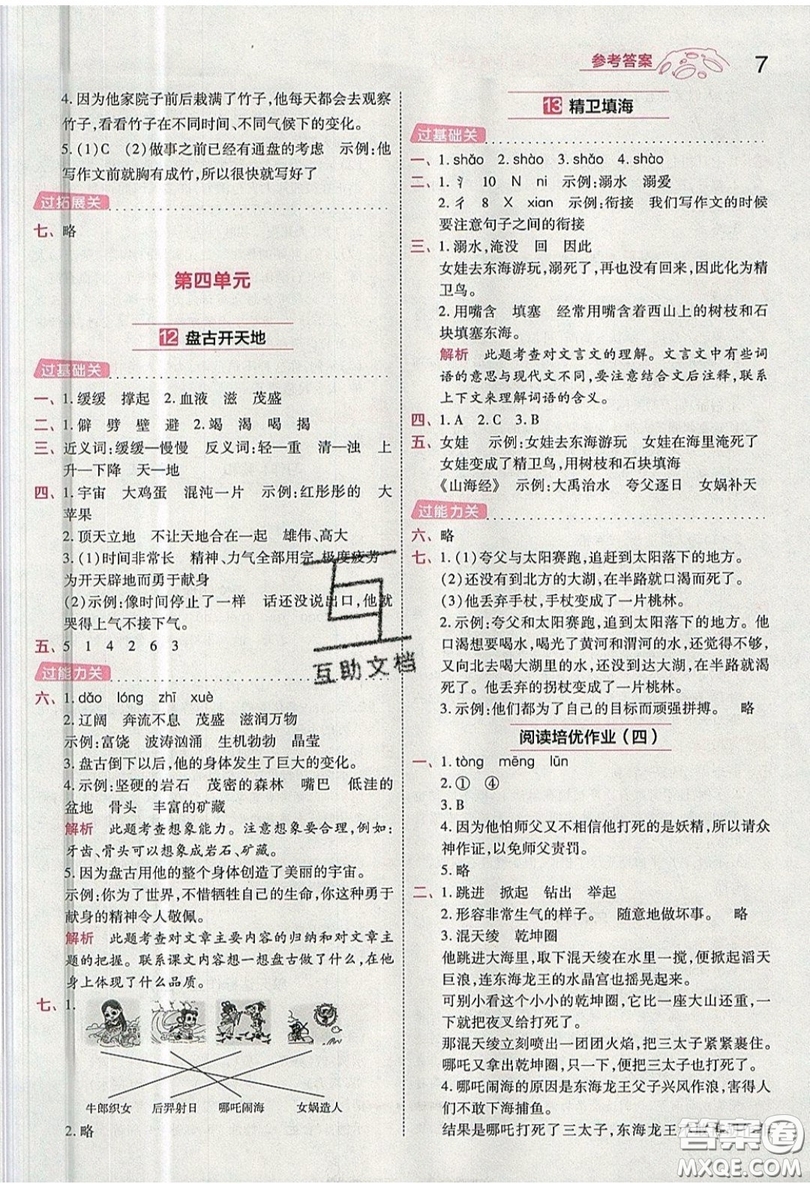 参考答案 7
4. 因为他家院子前后栽满了竹子,他每天都会去观察
竹子,看看竹子在不同时间、不同气候下的变化。
5. (1)C (2)做事之前已经有通盘的考虑 示例:他
写作文前就胸有成竹,所以很快就写好了。
过拓展关
七、略
第四单元
12 盘古开天地
过基础关
一、1. 缓缓 撑起 2. 血液 滋 茂盛
二、1. 僻 劈 壁 避 2. 竭 渴 喝 揭
三、近义词:缓缓—慢慢 反义词:轻—重 清—浊 上
升—下降 天—地
四、1. 宇宙 大鸡蛋 混沌一片 示例:红彤彤的 大
苹果
2. 顶天立地 不让天地合在一起 雄伟、高大
3. (1)时间非常长 精神、力气全部用完,极度疲劳
为开天辟地而勇于献身
(2)示例:像时间停止了一样 话还没说出口,他就
哭得上气不接下气。
五、5 1 4 2 6 3
过能力关
六、1. dǎo lóng zhī xuè
2. 辽阔 奔流不息 茂盛 滋润万物
示例:富饶 波涛汹涌 生机勃勃 晶莹
3. 盘古倒下以后,他的身体发生了巨大的变化。
4. 示例:坚硬的岩石 茂密的森林 嘴巴 低洼的
盆地 骨头 丰富的矿藏
解析 此题考查想象能力。注意想象要合理,例如:
牙齿、骨头可以想象成岩石、矿藏。
5. 因为盘古用他的整个身体创造了美丽的宇宙。
示例:你为了世界,不惜牺牲自己的生命,你这种勇于
献身的精神令人敬佩。
解析 此题考查对文章主要内容的归纳和对文章主
题的把握。联系课文内容想一想盘古做了什么,在他
的身上体现了什么品质。
七、1.
牛郎织女 后羿射日 哪吒闹海 女娲造人
2. 略
13 精卫填海
过基础关
一、1. shǎo 2. shào 3. shào
二、1. 氵 10 N nì 示例:溺水 溺爱
2. 彳 8 X xián 示例:衔接 我们写作文的时候
要注意句子之间的衔接
三、1. 溺水,淹没 回 因此
女娃去东海游玩,溺死了,再也没有回来,因此化为精
卫鸟。
2. 用嘴含 填塞 经常用嘴含着西山上的树枝和石
块填塞东海。
解析 此题考查对文言文的理解。文言文中有些词
语的意思与现代文不同,要注意看文后注释,联系
上下文来理解词语的含义。
四、1. A 2. C 3. B
五、女娃 示例:女娃去东海游玩 女娃在海里淹死了
女娃变成了精卫鸟,用树枝和石块填海
《山海经》 示例:大禹治水 夸父追日 女娲补天
过能力关
六、略
七、1. (1)夸父与太阳赛跑,追赶到太阳落下的地方。
(2)还没有到北方的大湖,在半路就口渴而死了。
(3)他丢弃手杖,手杖变成了一片桃林。
2. 示例:夸父和太阳赛跑,追到太阳落下的地方。他
感到口渴,想要喝水,喝光了黄河和渭河的水,还想
又向大湖跑去喝大湖里的水,还没到大湖,在半路就渴
死了。他丢弃的拐杖变成了一片桃林。
3. 示例:他们都为了自己的目标而顽强拼搏。 略
阅读培优作业(四)
一、1. tòng mēng lūn
2. ① ④
3. B
4. 因为他怕师父又不相信他打死的是妖精,所以请众
神作证,以免师父责罚。
5. 略
二、1. 跳进 掀起 钻出 举起
2. 形容非常生气的样子。 随意地做坏事。 略
3. 混天绫 乾坤圈
他跳进大海里,取下混天绫在水里一搅,便掀起滔天
巨浪,连东海龙王的水晶宫也摇晃起来。
可别小看这个小小的乾坤圈,它比一座大山还要重,
夜叉一下就给打死了。
那混天绫立刻喷出一团团火焰,把三太子紧紧裹住。
哪吒又拿起乾坤圈,把三太子也打死了。
4. 哪吒闹海的原因是东海龙王父子兴风作浪,害人
不敢下海捕鱼。
结果是哪吒打死了三太子,东海龙王
互助文档
答案圈
MXQE.COM